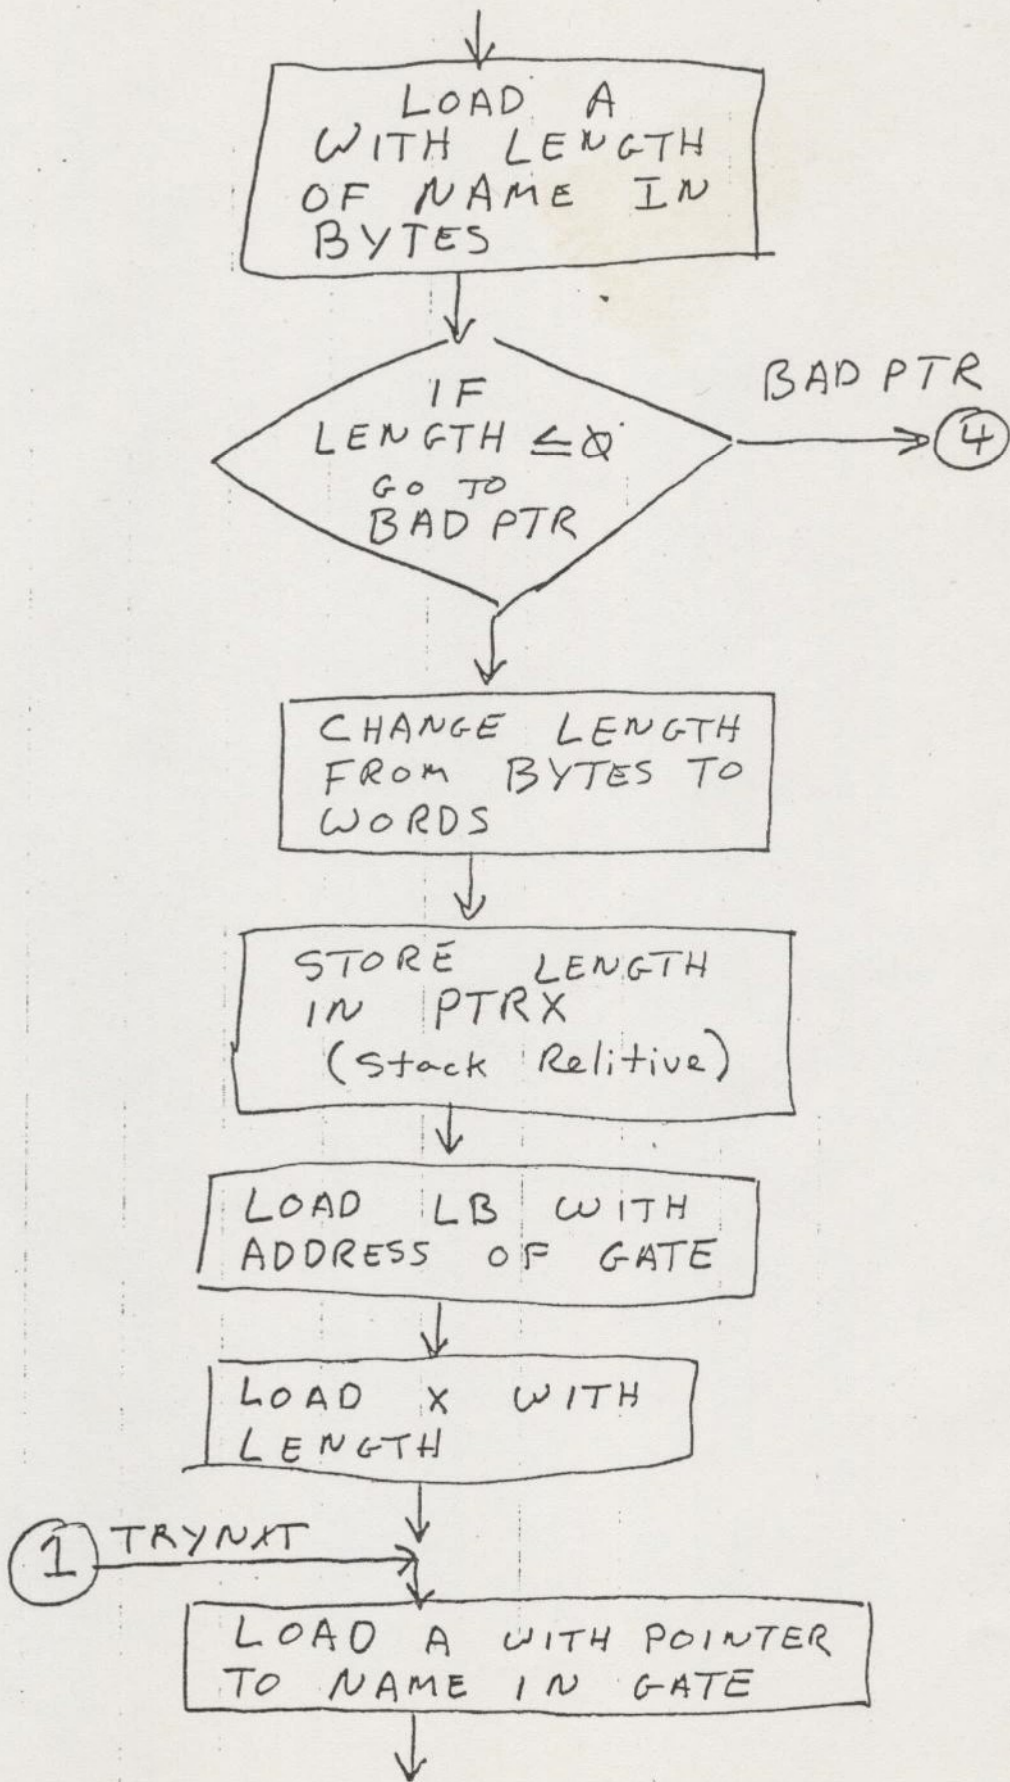 LOAD A
WITH LENGTH
OF NAME IN
BYTES
IF
LENGTH ≤ Ø
GO TO
BAD PTR
BAD PTR
4
CHANGE LENGTH
FROM BYTES TO
WORDS
STORE LENGTH
IN PTRX
(Stack Relitive)
LOAD LB WITH
ADDRESS OF GATE
LOAD X WITH
LENGTH
1 TRYNXT
LOAD A WITH POINTER
TO NAME IN GATE